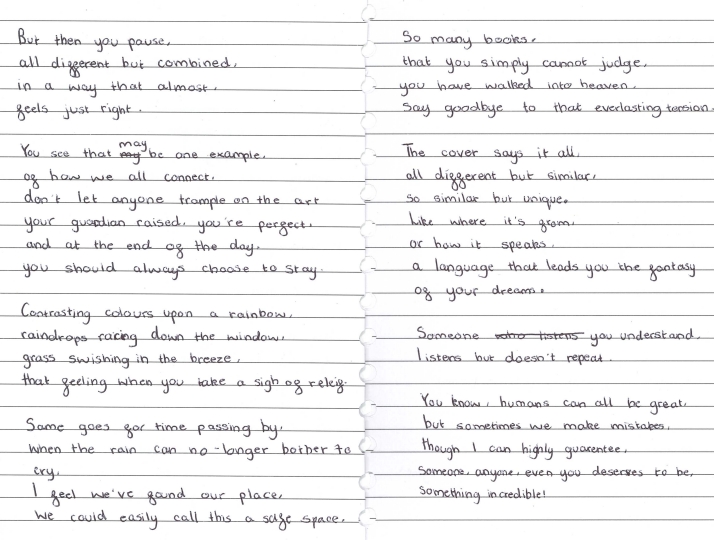 But then you pause,
all different but combined,
in a way that almost,
feels just right.
You see that may be one example,
of how we all connect,
don't let anyone trample on the art
your guardian raised, you're perfect,
and at the end of the day,
you should always choose to stay.
Contrasting colours upon a rainbow,
raindrops racing down the window,
grass swishing in the breeze,
that feeling when you take a sigh of relief.
Same goes for time passing by,
when the rain can no-longer bother to
cry.
I feel we've found our place,
we could easily call this a safe space.
So many books,
that you simply cannot judge,
you have walked into heaven,
say goodbye to that everlasting tension.
The cover says it all,
all different but similar,
so similar but unique.
Like where it's from,
or how it speaks.
a language that leads you the fantasy
of your dreams.
Someone who listens you understand,
listens but doesn't repeat.
You know, humans can all be great,
but sometimes we make mistakes,
though I can highly guarentee,
someone, anyone, even you deserves to be,
something incredible!